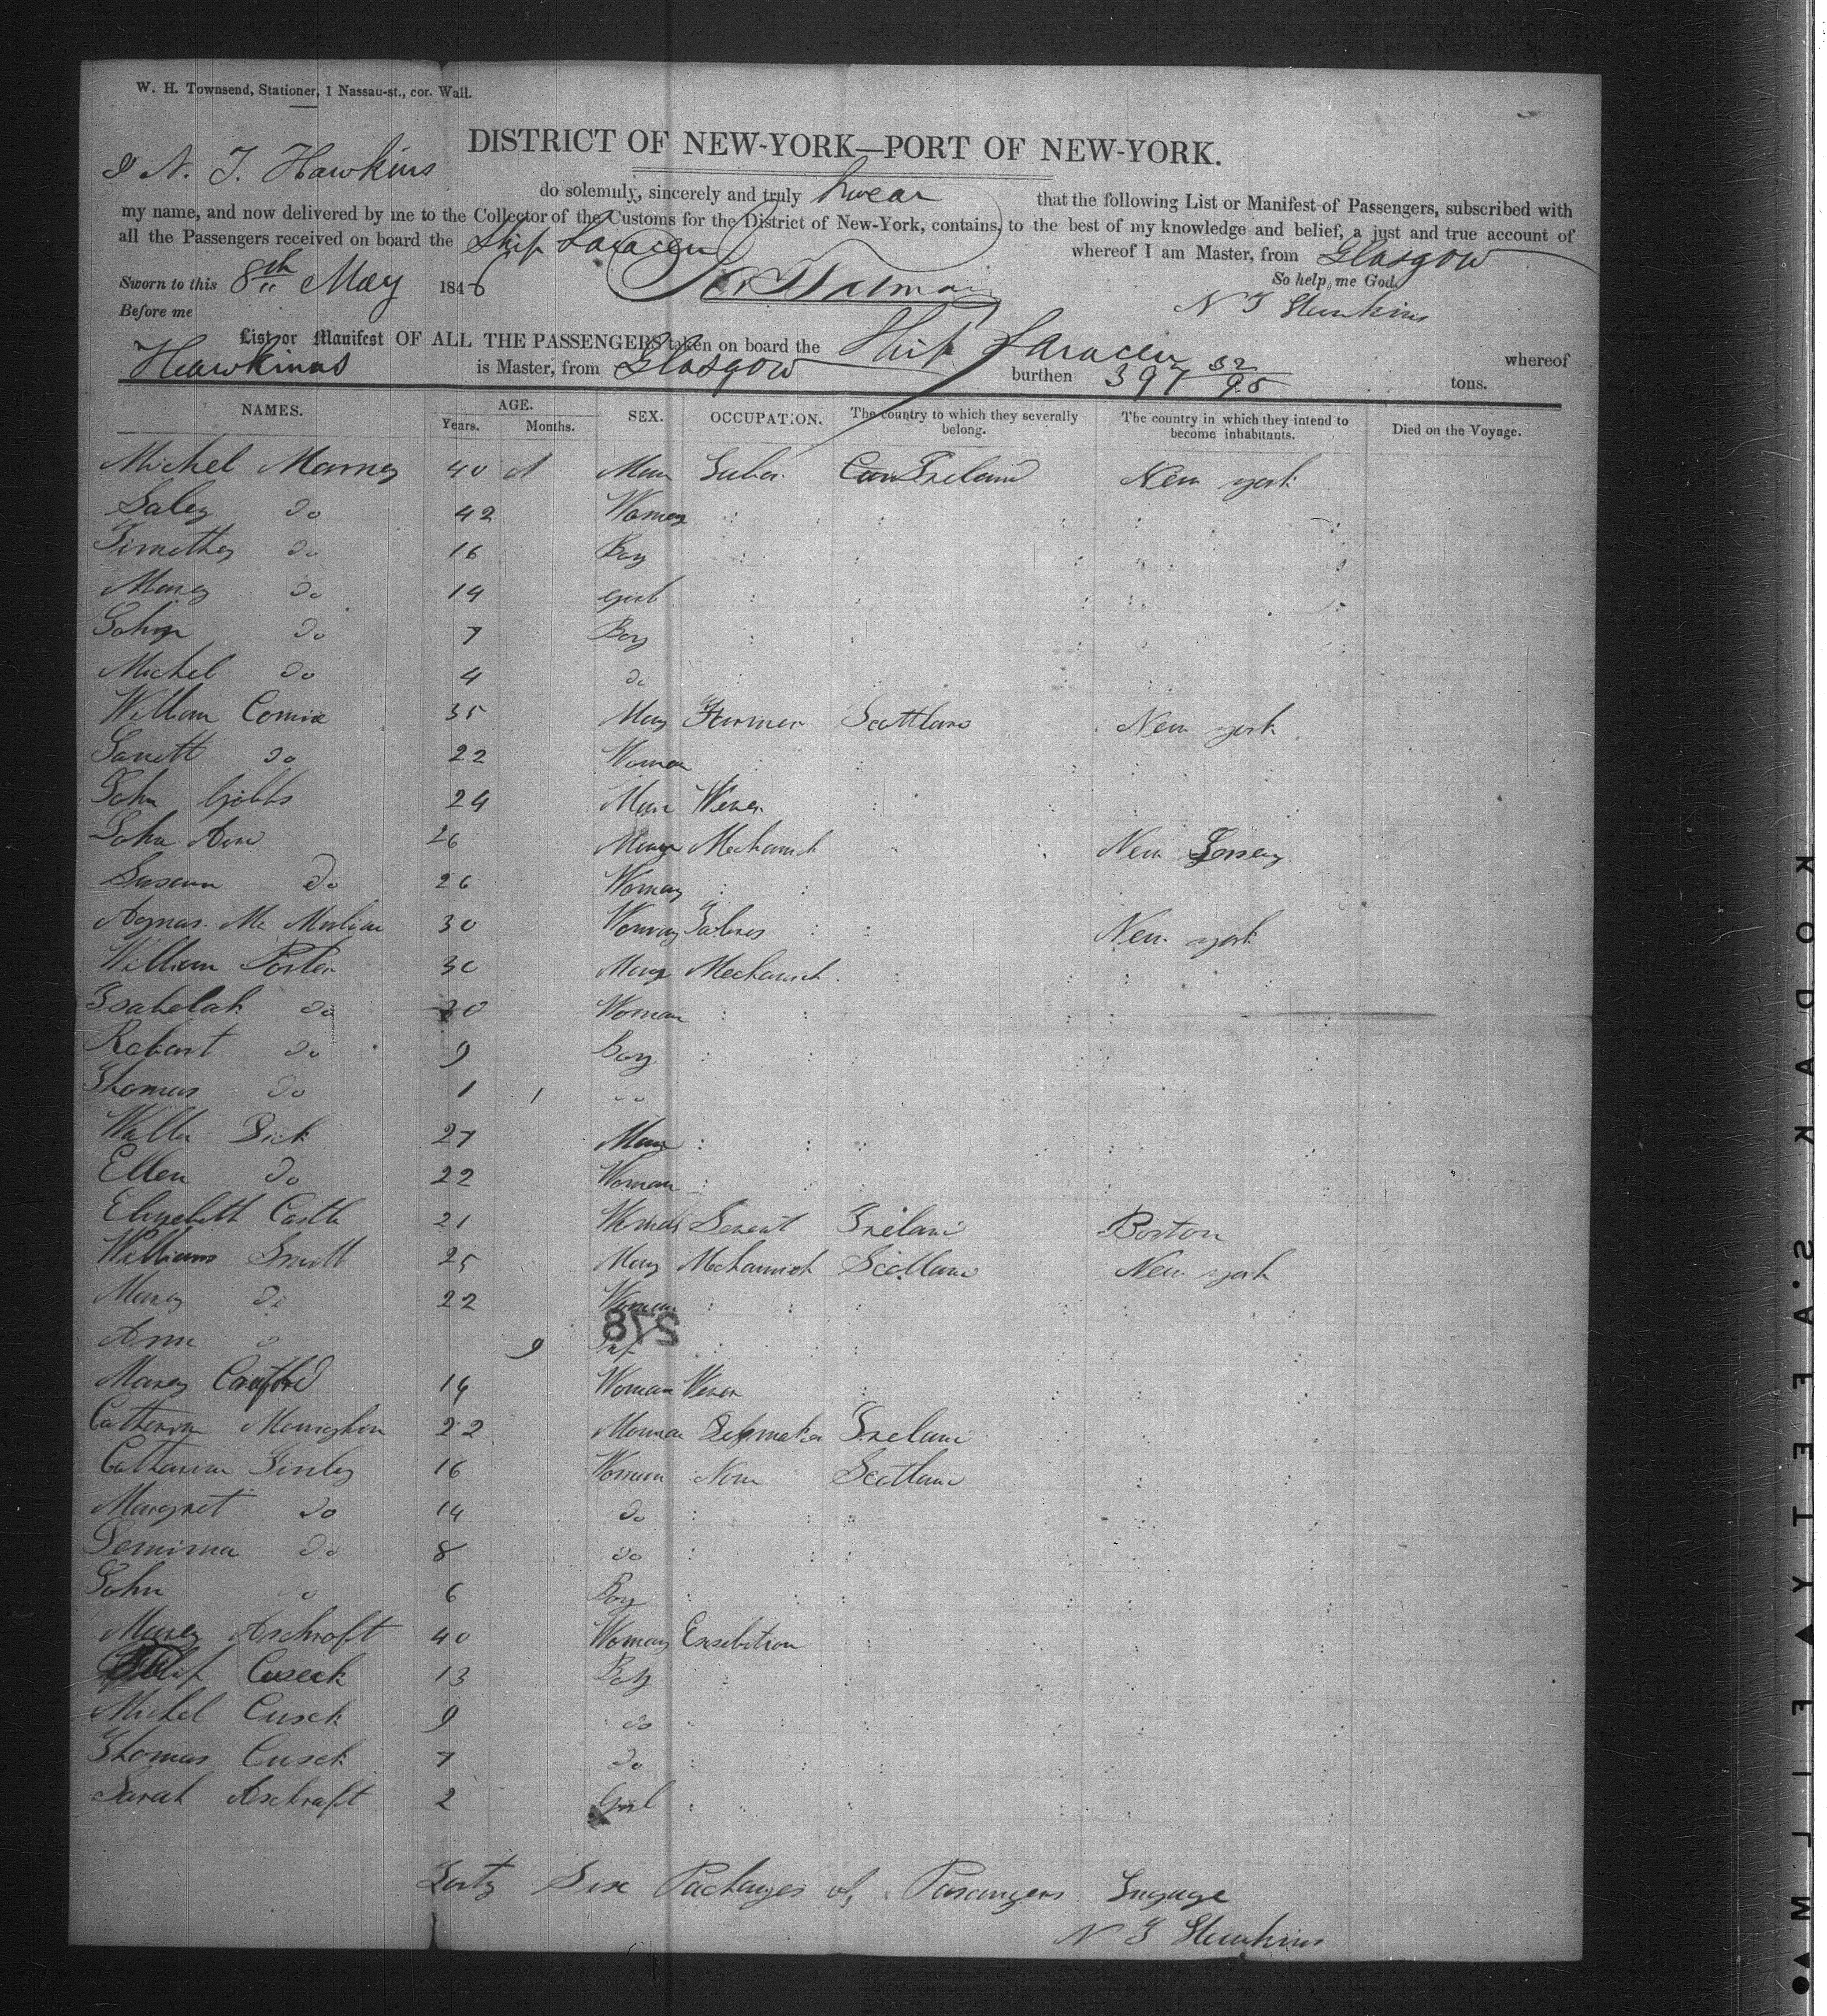 W. H. Townsend, Stationer, 1 Nassau-st., cor. Wall.
DISTRICT OF NEW-YORK—PORT OF NEW-YORK.
I N. T. Hawkins do solemnly, sincerely and truly swear that the following List or Manifest of Passengers, subscribed with
my name, and now delivered by me to the Collector of the Customs for the District of New-York, contains, to the best of my knowledge and belief, a just and true account of
all the Passengers received on board the Ship Saracen whereof I am Master, from Glasgow
Sworn to this 8th May 1846 So help me God.
Before me N T Hawkins
List or Manifest OF ALL THE PASSENGERS taken on board the Ship Saracen whereof
Hawkins is Master, from Glasgow burthen 397 32/95 tons.
NAMES. AGE. Years. Months. SEX. OCCUPATION. The country to which they severally belong. The country in which they intend to become inhabitants. Died on the Voyage.
Michel Marney 40 Man Ireland New york
Saley Do 42 Woman
Timothey Do 16 Boy
Marey Do 14 girl
John Do 7 Boy
Michel Do 4 Do
William 35 Man Farmer Scottland New york
Janett Do 22 Woman
John Gibbs 24 Man Wever
John 26 Man Mechanick New Jersey
Susann Do 26 Woman
Agnas Mc 30 Woman New york
William Porter 30 Man Mechanick
Isabelah Do 30 Woman
Robart Do 9 Boy
Thomas Do 1 1 Do
Walter Dick 27 Man
Ellen Do 22 Woman
Elizebeth Castle 21 Servent Ireland Boston
William Smith 25 Man Mechanick Scotland New york
Marey Do 22 Woman
278
Ann Do 9 Inf
Marey Crafford 14 Woman Wever
Catherin Monighan 22 Woman Ireland
Catharin Finley 16 Woman Non Scotland
Margret Do 14 Do
Jemima Do 8 Do
John Do 6 Boy
Marey Aschroft 40 Woman
Cuseck 13 Boy
Michel Cusek 9 Do
Thomas Cusek 7 Do
Sarah Aschraft 2 Girl
Forty Six Packages of Pasangers Lugage
N T Hawkins
KODAK S'AFETY FILM